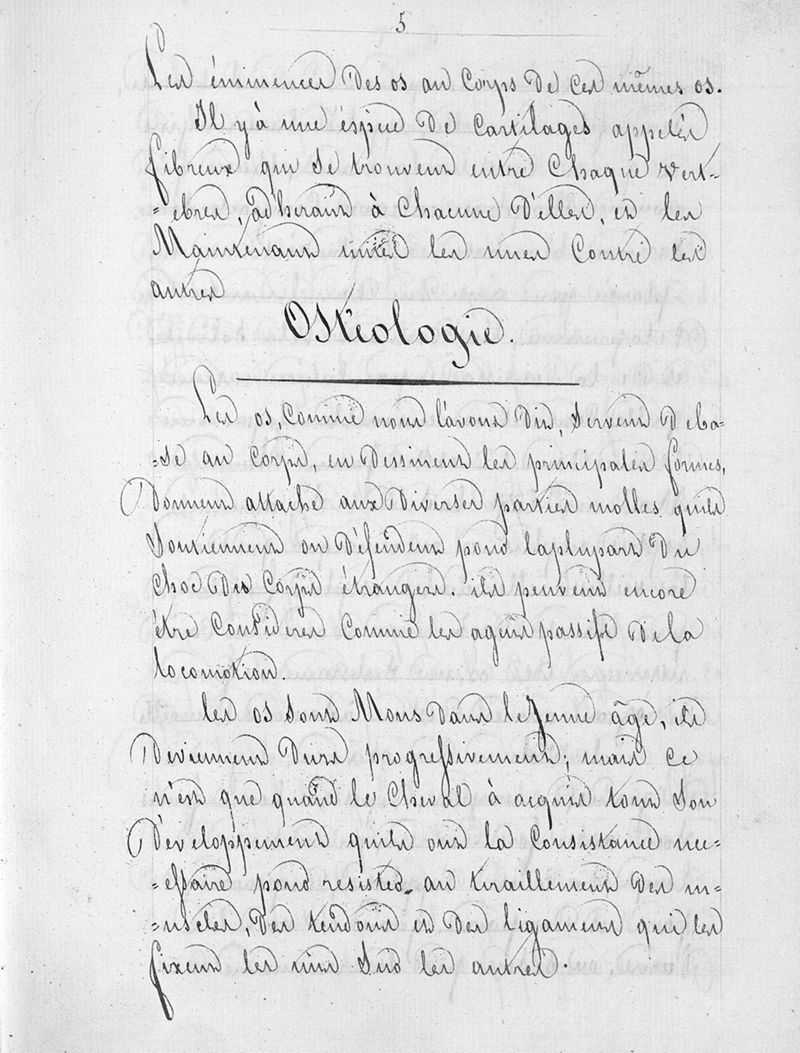 5
Les éminences des os au Corps de ces mêmes os.
Il y à une éspece de Cartilages appelés
fibreux qui se trouvent entre Chaque vert-
-ebres, adhérant à Chacune D'elles, et les
Maintenant unies les unes Contre les
autres
Ostéologie.
Les os, Comme nous l'avons Dit, servent De ba-
-se au Corps, en Dessinent les principales formes,
Donnent attache aux Diverses parties molles quils
Soutiennent ou Défendent pour laplupart Du
choc Des Corps étrangers. ils peuvent encore
être Considerés Comme les agents passifs De la
locomotion.
les os sont Mous Dans le Jeune âge, ils
Deviennent Durs progressivement; mais ce
n'est que quand le Cheval à acquis tout Son
Développement quils ont la Consistance nec-
-essaire pour resister au tiraillement Des m-
-uscles, Des tendons et Des ligaments qui les
fixent les uns Sur les autres.